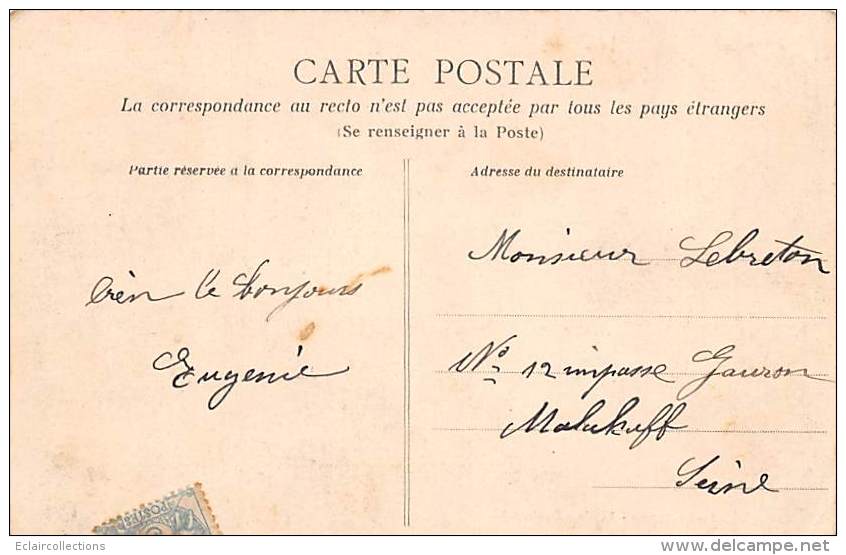 CARTE POSTALE
La correspondance au recto n'est pas acceptée par tous les pays étrangers
(Se renseigner à la Poste)
Partie réservée à la correspondance
Adresse du destinataire
bien le bonjours
Eugenie
Monsieur Lebreton
No 12 impasse Gauron
Malakoff
Seine
POSTES
Eclaircollections
www.delcampe.net